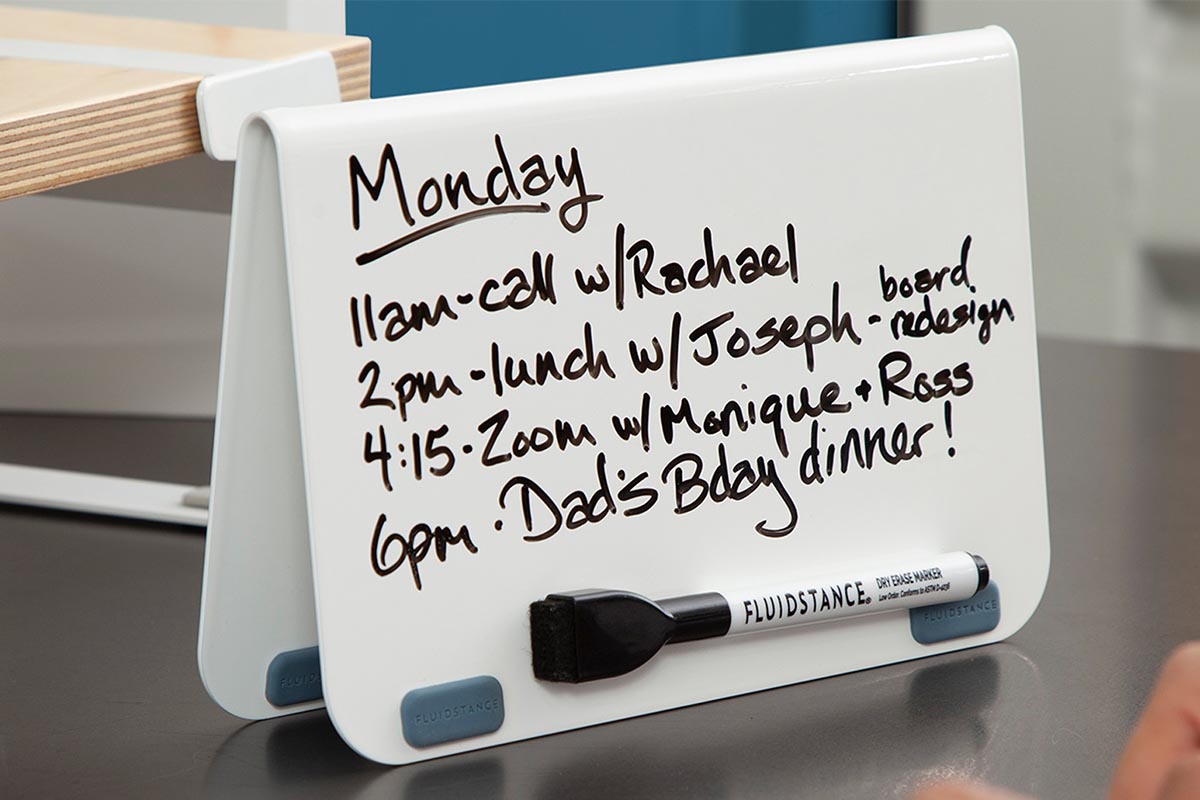 Monday
11am - call w/Rachael
2pm - lunch w/Joseph - board redesign
4:15 · Zoom w/Monique + Ross
6pm · Dad's Bday dinner!
FLUIDSTANCE® DRY ERASE MARKER
Low Odor. Conforms to ASTM D-4236
FLUIDSTANCE
FLUIDSTANCE
FLUIDS